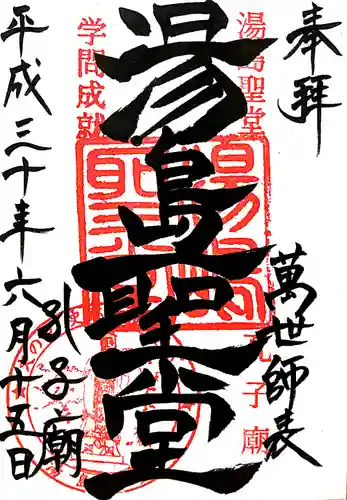 奉拝
萬世師表
湯島聖堂
孔子廟
湯島聖堂
学問成就
孔子廟
平成三十年六月十五日